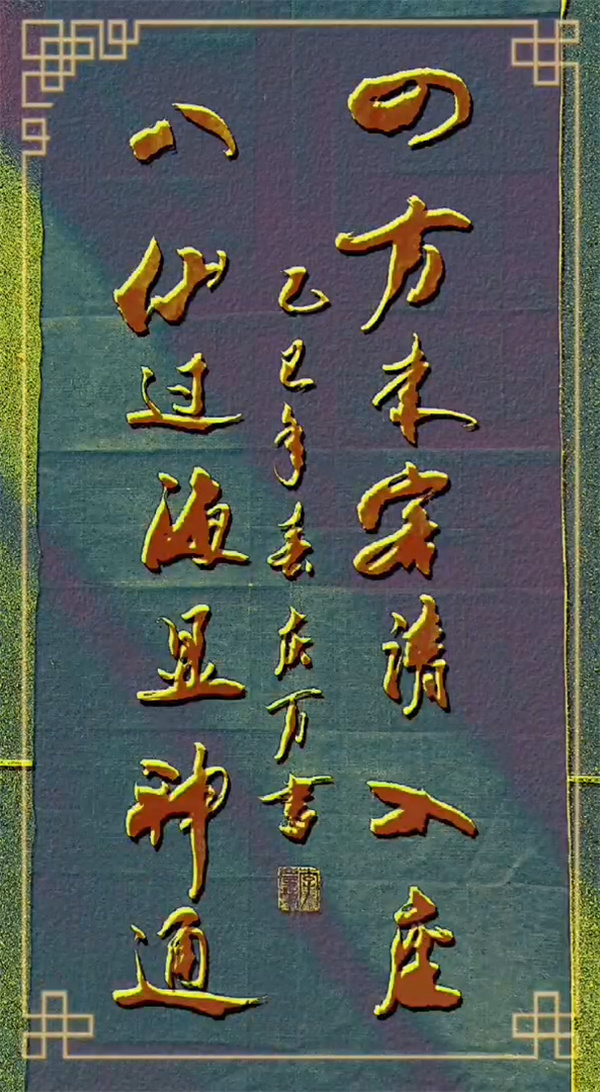 四方来客请入座
八仙过海显神通
乙巳年春庆万书